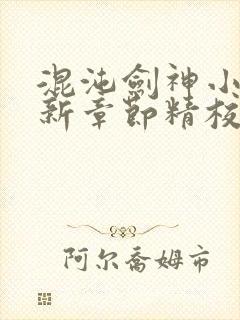 混沌劍神小
新章節精校
阿尔喬姆市